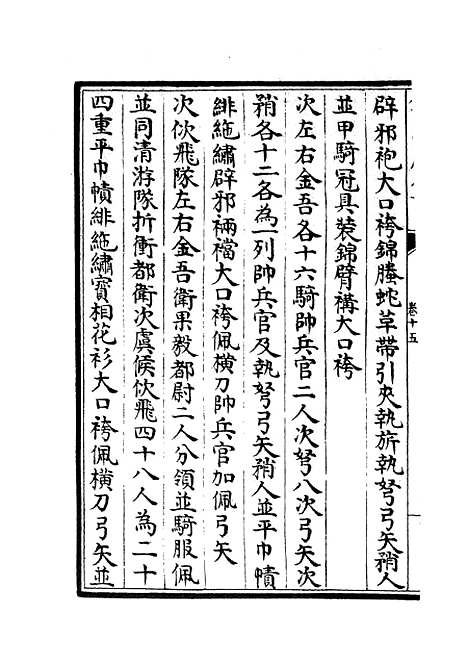 辟邪袍大口袴錦螣蛇革帶引夾執旂執弩弓矢矟人
並甲騎冠具裝錦臂褠大口袴
次左右金吾各十六騎帥兵官二人次弩八次弓矢次
矟各十二各為一列帥兵官及執弩弓矢矟人並平巾幘
緋絁繡辟邪裲襠大口袴佩横刀帥兵官加佩弓矢
次佽飛隊左右金吾衛果毅都尉二人分領並騎服佩
並同清游隊折衝都衛次虞候佽飛四十八人為二十
四重平巾幘緋絁繡寳相花衫大口袴佩横刀弓矢並
卷十五